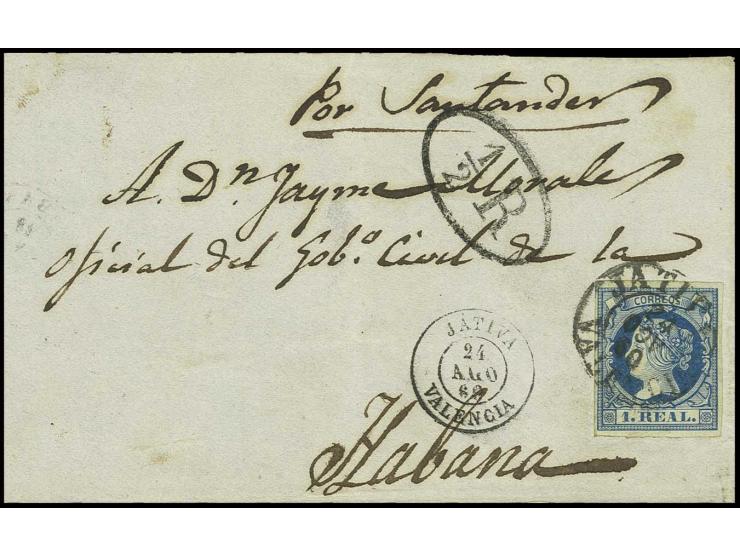 Por Santander
1/2 R
A. Dn. Jayme Morales
Oficial del Gobo. Civil de la
Habana
JATIVA
24
AGO
VALENCIA
CORREOS
1. REAL.